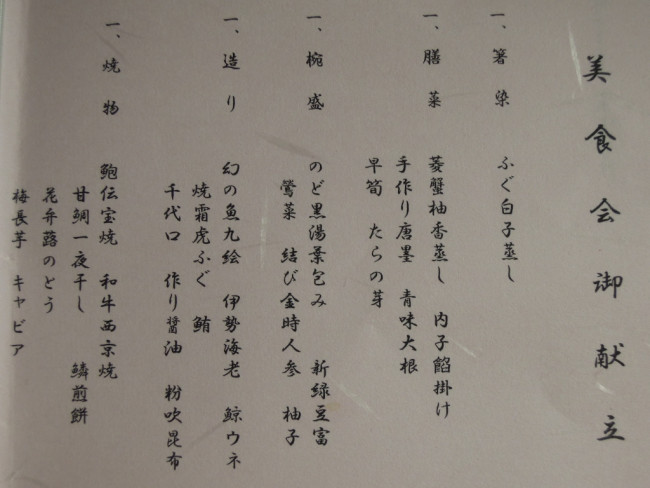 美食会御献立
一、箸染 ふぐ白子蒸し
一、膳菜 菱蟹柚香蒸し 内子餡掛け
手作り唐墨 青味大根
早筍 たらの芽
一、椀盛 のど黒湯葉包み 新緑豆富
鶯菜 結び金時人参 柚子
一、造り 幻の魚九絵 伊勢海老 鯨ウネ
焼霜虎ふぐ 鮪
千代口 作り醤油 粉吹昆布
一、焼物 鮑伝宝焼 和牛西京焼
甘鯛一夜干し 鱗煎餅
花弁蕗のとう
梅長芋 キャビア